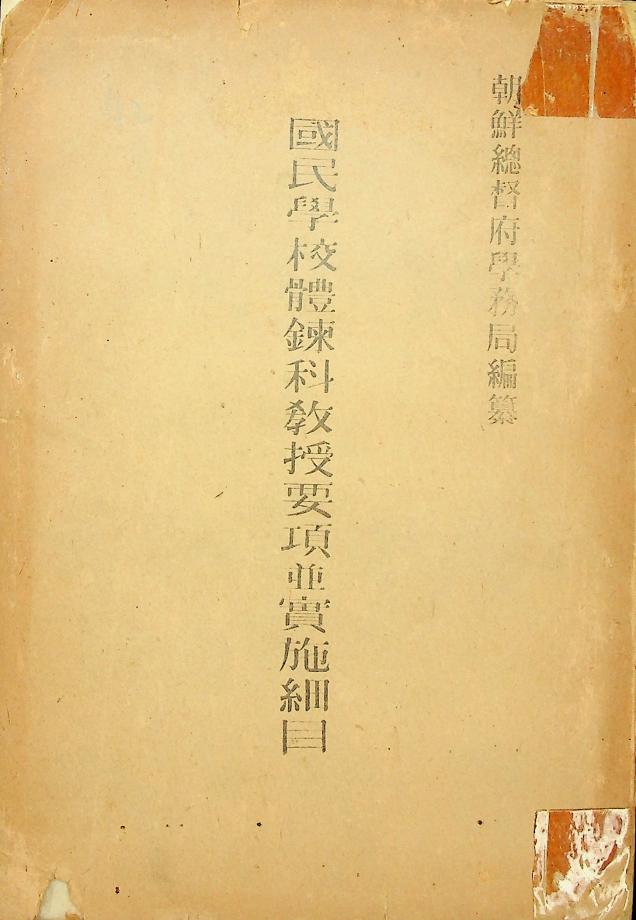 朝鮮總督府學務局編纂
國民學校體鍊科敎授要項並實施細目